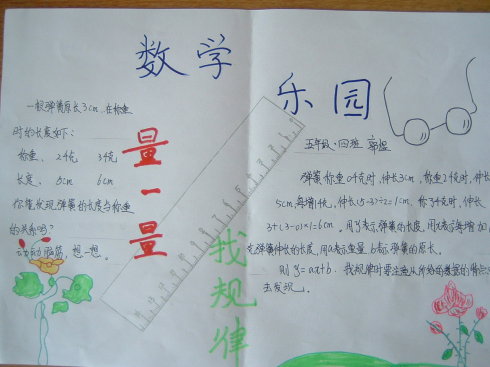 数学
乐园
一根弹簧原长3cm,在称重
时的长度如下:
称重、 2千克 3千克
长度、 5cm 6cm
你能发现弹簧的长度与称重
的关系吗?
动动脑筋,想一想。
量一量
找规律
五年级·四班
弹簧称重0千克时,伸长3cm,称重2千克时,伸长
5cm,每增1千克,伸长(5-3)÷2=1cm,称3千克时,伸长
3+(3-0)×1=6cm.用y表示弹簧的长度,用x表示每增加,
弹簧伸长的长度,用a表示重量 b表示弹簧的原长。
则 y=ax+b. 找规律时要注意从
去发现.